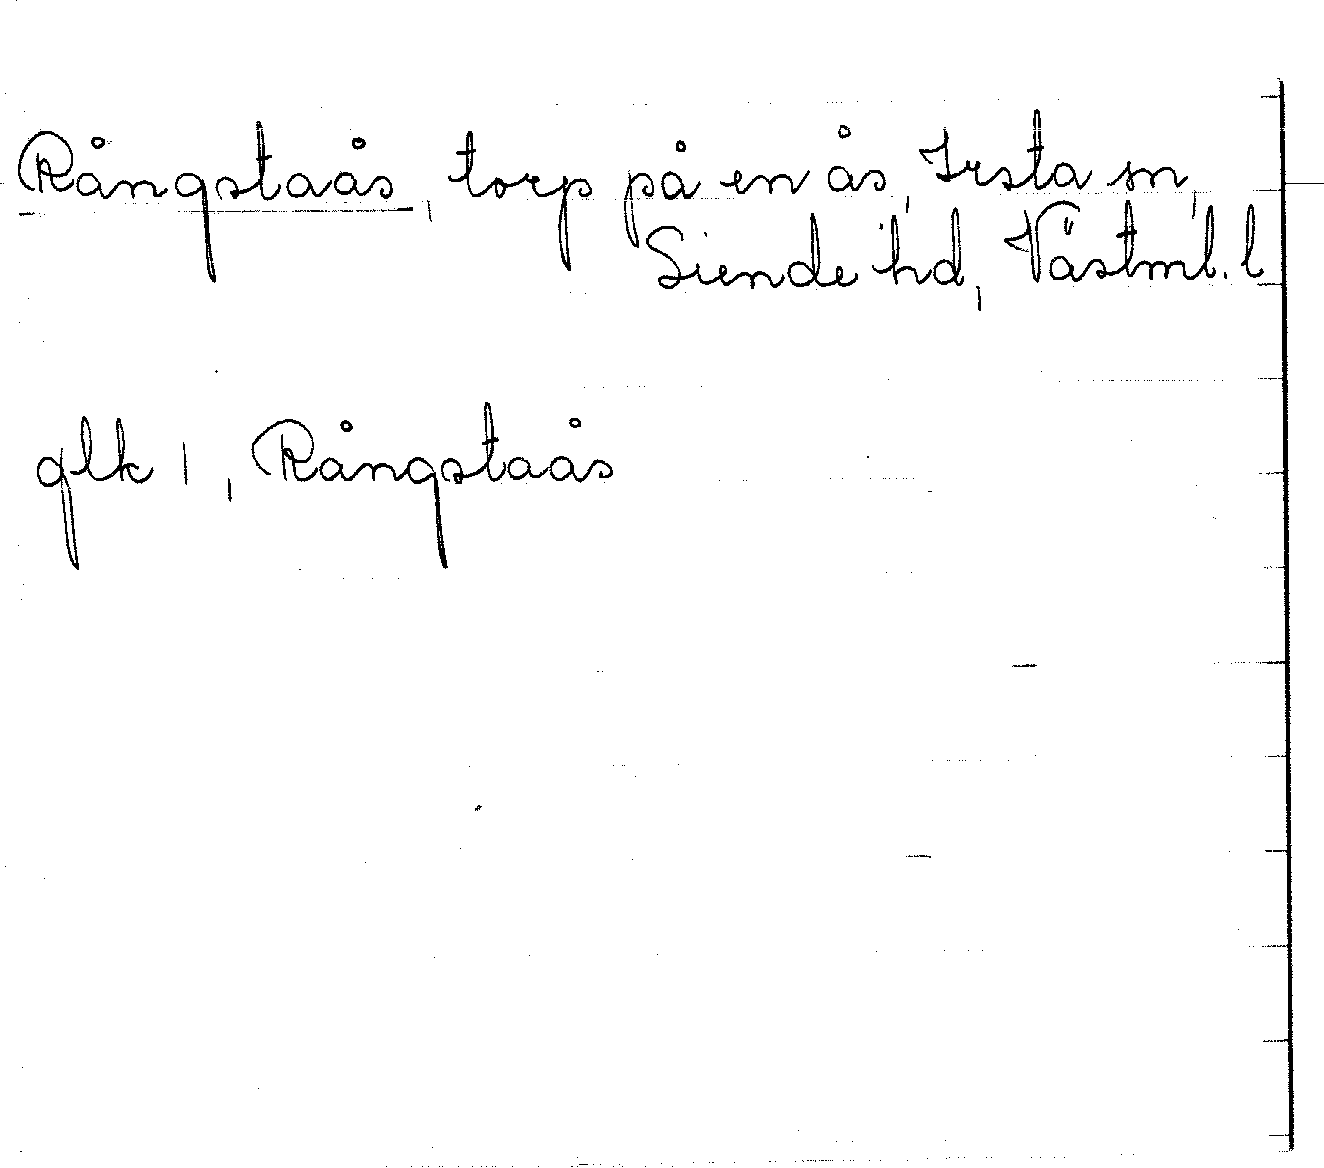 Rångstaås, torp på en ås, Irsta sn,
Siende hd, Västml. l
glk 1, Rångstaås